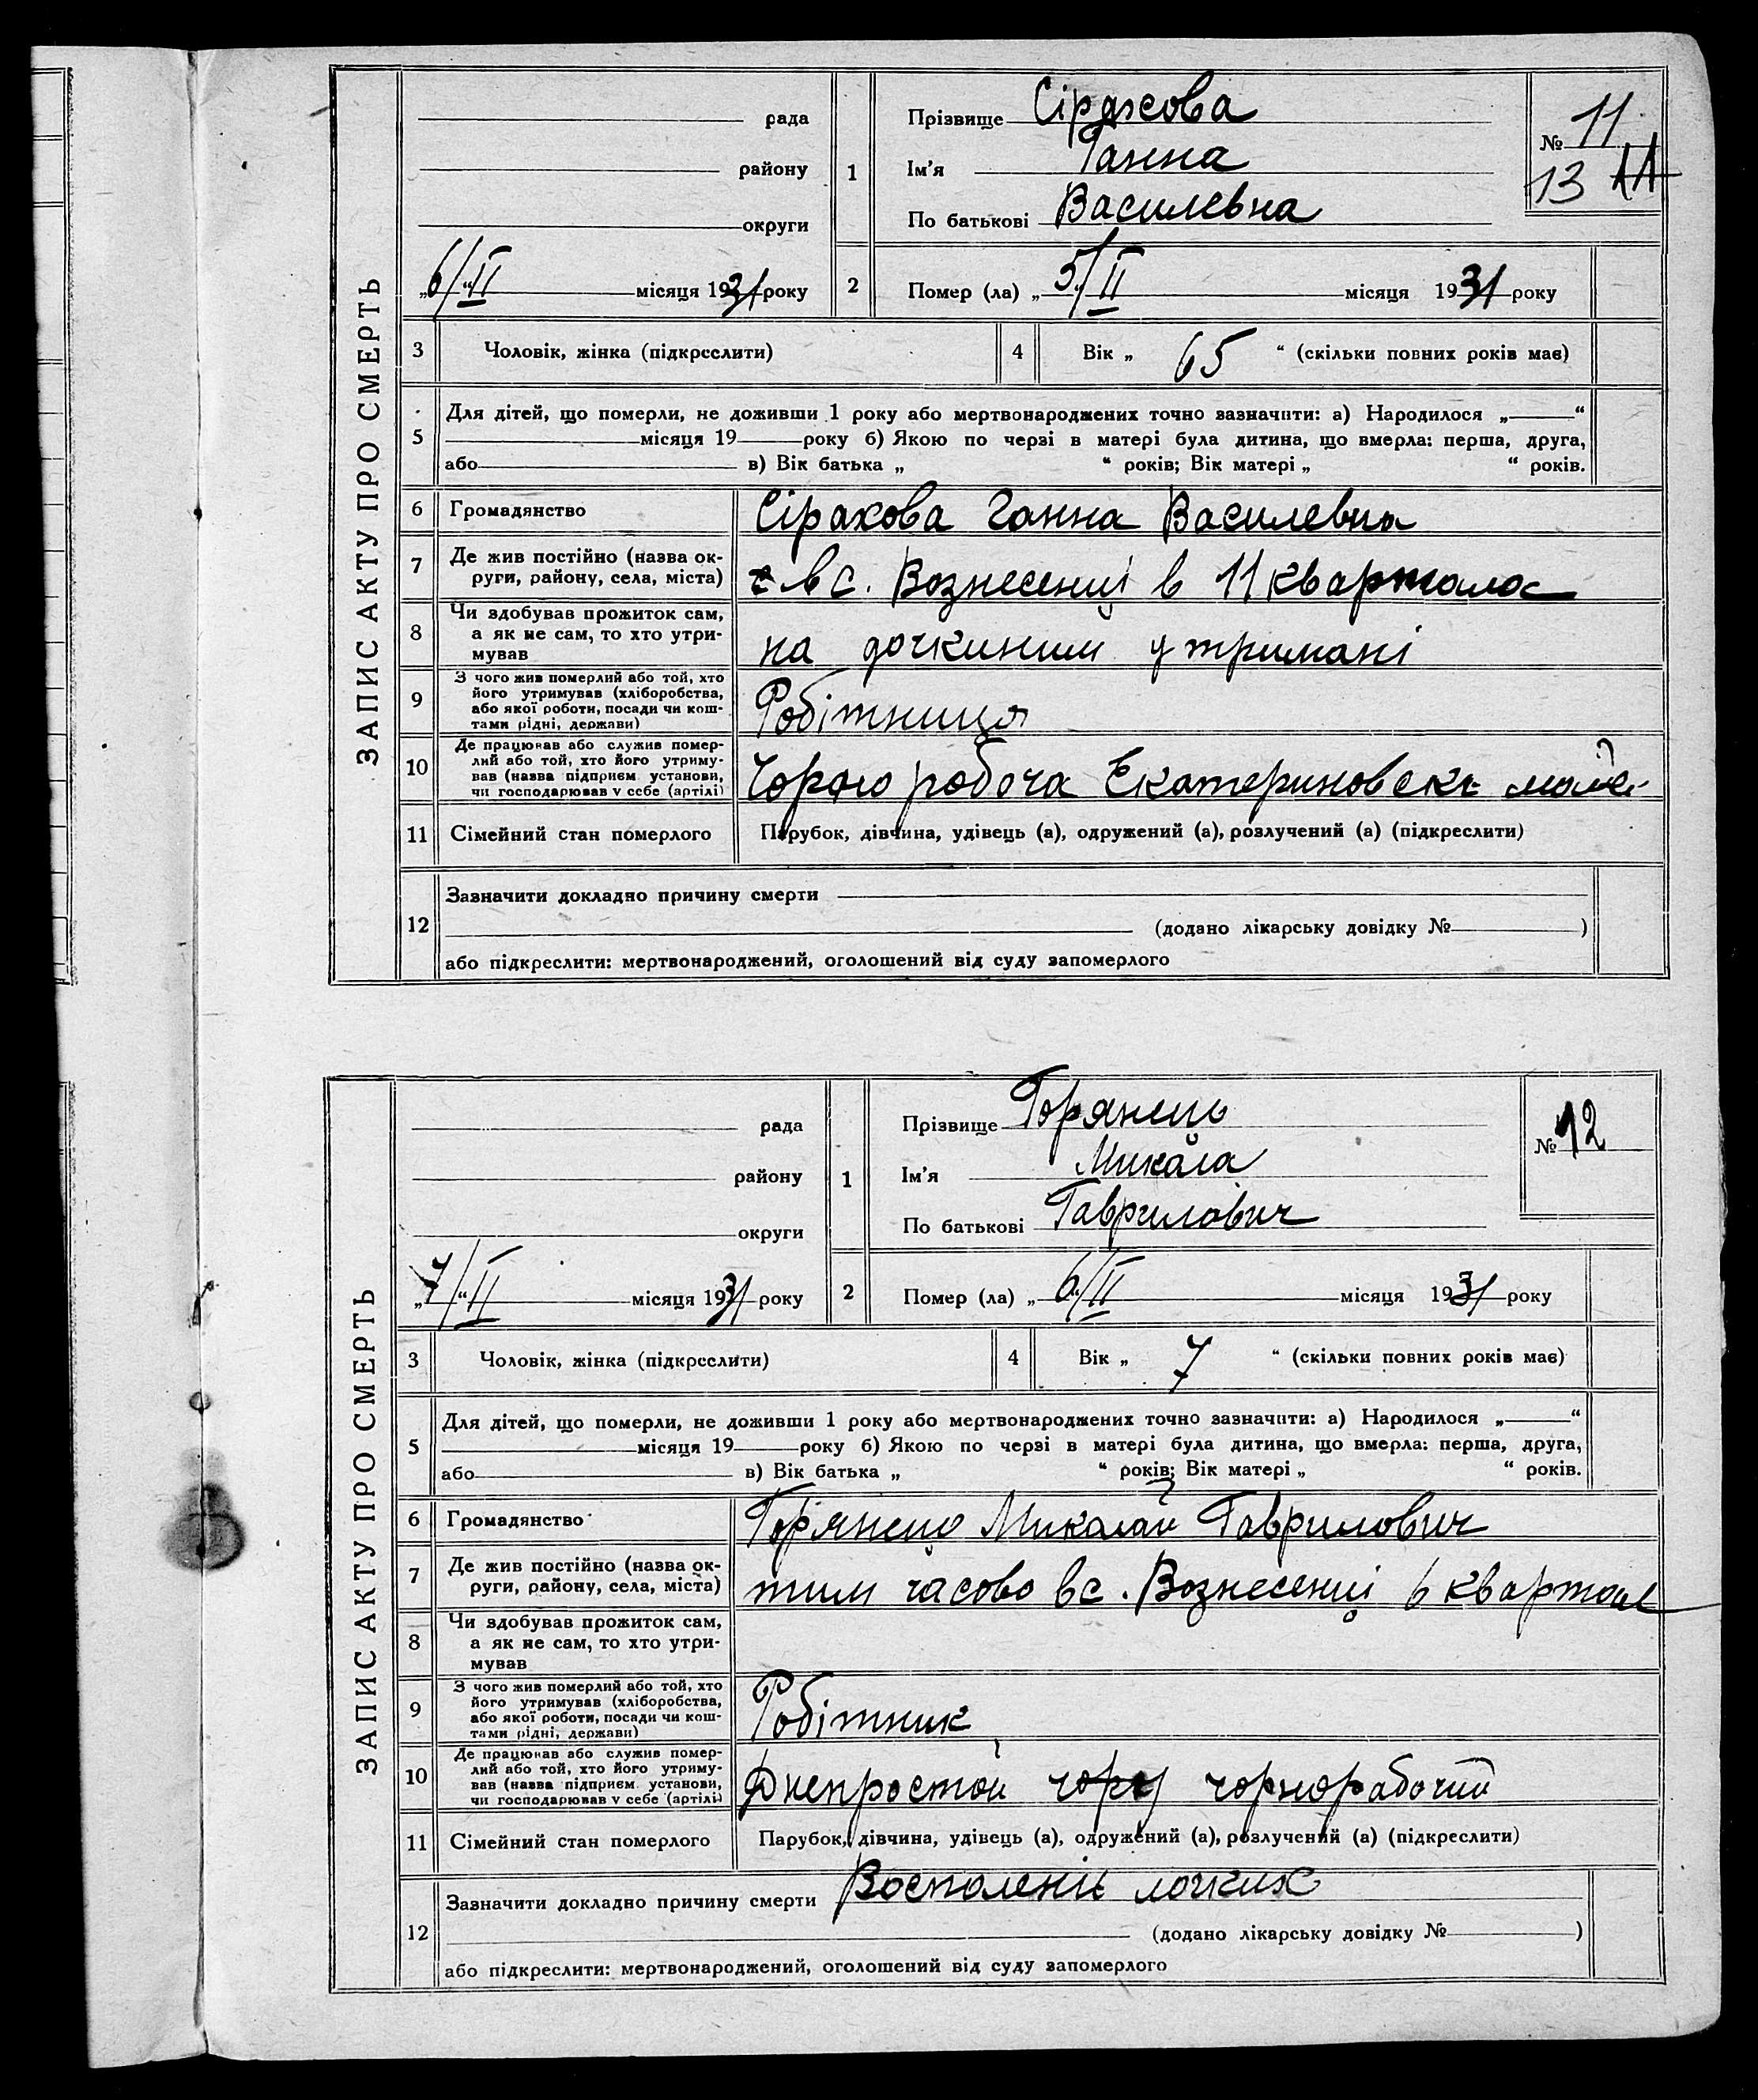 ЗАПИС АКТУ ПРО СМЕРТЬ
рада
району
округи
„6/“ІІ місяця 1931 року
1
Прізвище Сіракова
Ім'я Ганна
По батькові Василевна
№ 11
13 11
2
Помер (ла) „5/“ІІ місяця 1931 року
3 Чоловік, жінка (підкреслити)
4 Вік „ 65 “ (скільки повних років має)
5 Для дітей, що померли, не доживши 1 року або мертвонароджених точно зазначити: а) Народилося „ “
місяця 19 року б) Якою по черзі в матері була дитина, що вмерла: перша, друга,
або в) Вік батька „ “ років; Вік матері „ “ років.
6 Громадянство Сіракова Ганна Василевна
7 Де жив постійно (назва ок-
руги, району, села, міста) в с. Вознесенці в 11 квартала
8 Чи здобував прожиток сам,
а як не сам, то хто утри-
мував
на дочкиним утримані
9 З чого жив померлий або той, хто
його утримував (хліборобства,
або якої роботи, посади чи кош-
тами рідні, держави)
Робітниця
10 Де працював або служив помер-
лий або той, хто його утриму-
вав (назва підприєм. установи,
чи господарював у себе (артілі)
Чорно робоча
11 Сімейний стан померлого Парубок, дівчина, удівець (а), одружений (а), розлучений (а) (підкреслити)
12 Зазначити докладно причину смерти
(додано лікарську довідку № )
або підкреслити: мертвонароджений, оголошений від суду запомерлого
ЗАПИС АКТУ ПРО СМЕРТЬ
рада
району
округи
„7/“ІІ місяця 1931 року
1
Прізвище Горянець
Ім'я Микола
По батькові Гаврилович
№ 12
2
Помер (ла) „6/“ІІ місяця 1931 року
3 Чоловік, жінка (підкреслити)
4 Вік „ 7 “ (скільки повних років має)
5 Для дітей, що померли, не доживши 1 року або мертвонароджених точно зазначити: а) Народилося „ “
місяця 19 року б) Якою по черзі в матері була дитина, що вмерла: перша, друга,
або в) Вік батька „ “ років; Вік матері „ “ років.
6 Громадянство Горянець Миколай Гаврилович
7 Де жив постійно (назва ок-
руги, району, села, міста) тим часово в с. Вознесенці 6 квартал
8 Чи здобував прожиток сам,
а як не сам, то хто утри-
мував
9 З чого жив померлий або той, хто
його утримував (хліборобства,
або якої роботи, посади чи кош-
тами рідні, держави)
Робітник
10 Де працював або служив помер-
лий або той, хто його утриму-
вав (назва підприєм. установи,
чи господарював у себе (артілі)
Днепрострой чорнорабочий
11 Сімейний стан померлого Парубок, дівчина, удівець (а), одружений (а), розлучений (а) (підкреслити)
12 Зазначити докладно причину смерти Воспаленіе лочких
(додано лікарську довідку № )
або підкреслити: мертвонароджений, оголошений від суду запомерлого